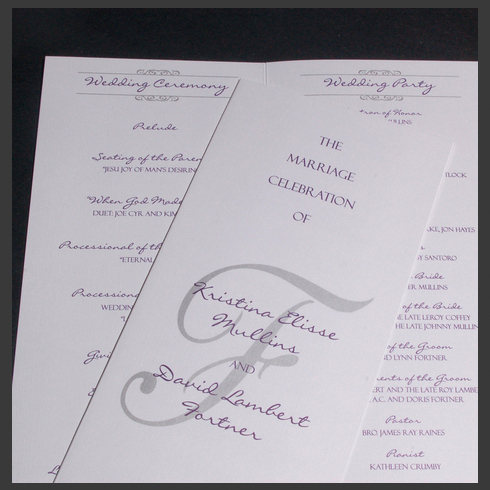 Wedding Ceremony
Prelude
Seating of the
"JESU JOY OF MAN'S
"When God Made
DUET: JOE CYR AND KIM
Processional of the
"ETERNAL
Processional
WEDDING
THE
MARRIAGE
CELEBRATION
OF
F
Kristina Elisse
Mullins
AND
David Lambert
Fortner
Wedding Party
of Honor
JON HAYES
SANTORO
Bride
MULLINS
of the Bride
THE LATE LEROY COFFEY
THE LATE JOHNNY
of the Groom
LYNN FORTNER
of the Groom
AND THE LATE ROY
A.C. AND DORIS FORTNER
Pastor
BRO. JAMES RAY RAINES
Pianist
KATHLEEN CRUMBY